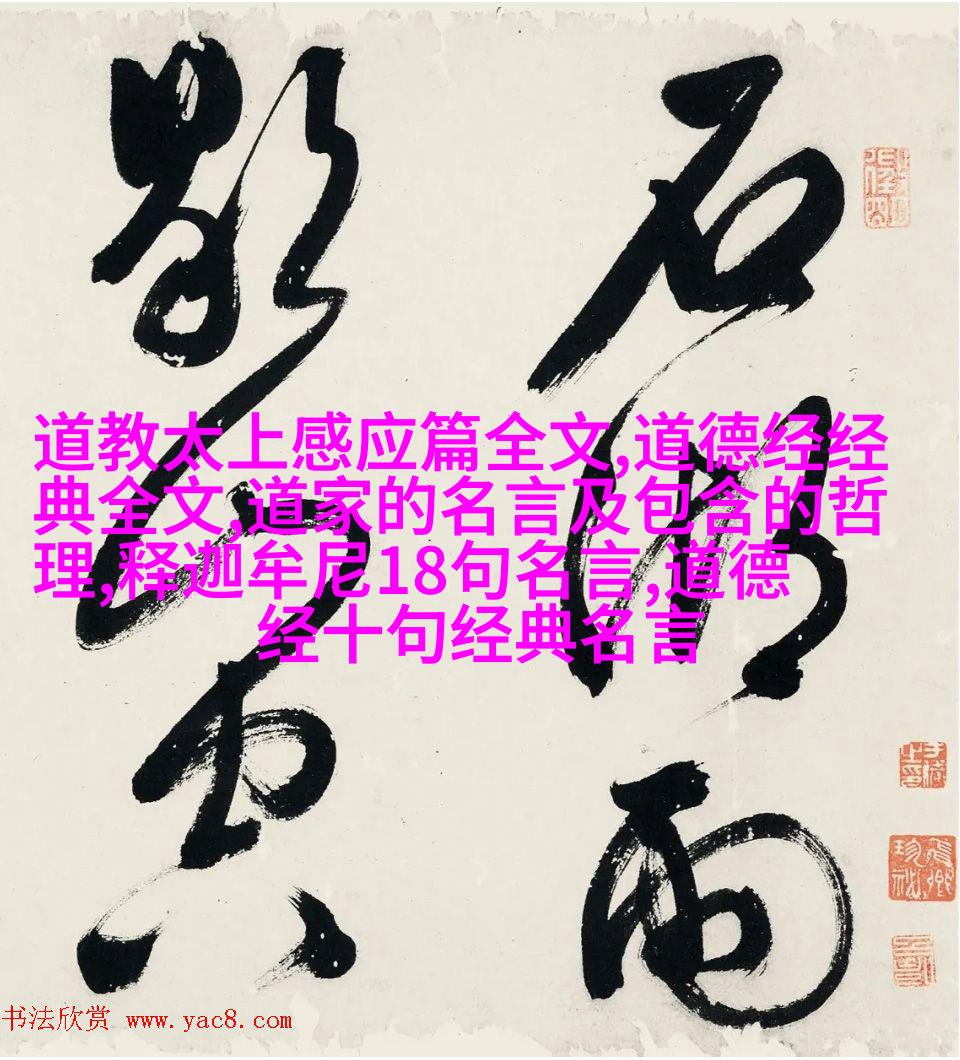 石湖雨
歇山空
道教太上感应篇全文,道德经经
典全文,道家的名言及包含的哲
理,释迦牟尼18句名言,道德
经十句经典名言
书法欣赏 www.yac8.com